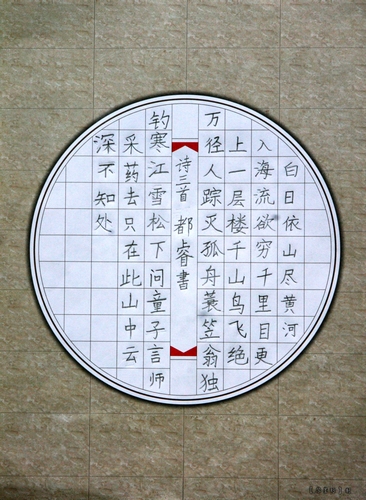 白日依山尽黄河
入海流欲穷千里目更
上一层楼千山鸟飞绝
万径人踪灭孤舟蓑笠翁独
诗三首 都睿书
钓寒江雪松下问童子言师
采药去只在此山中云
深不知处